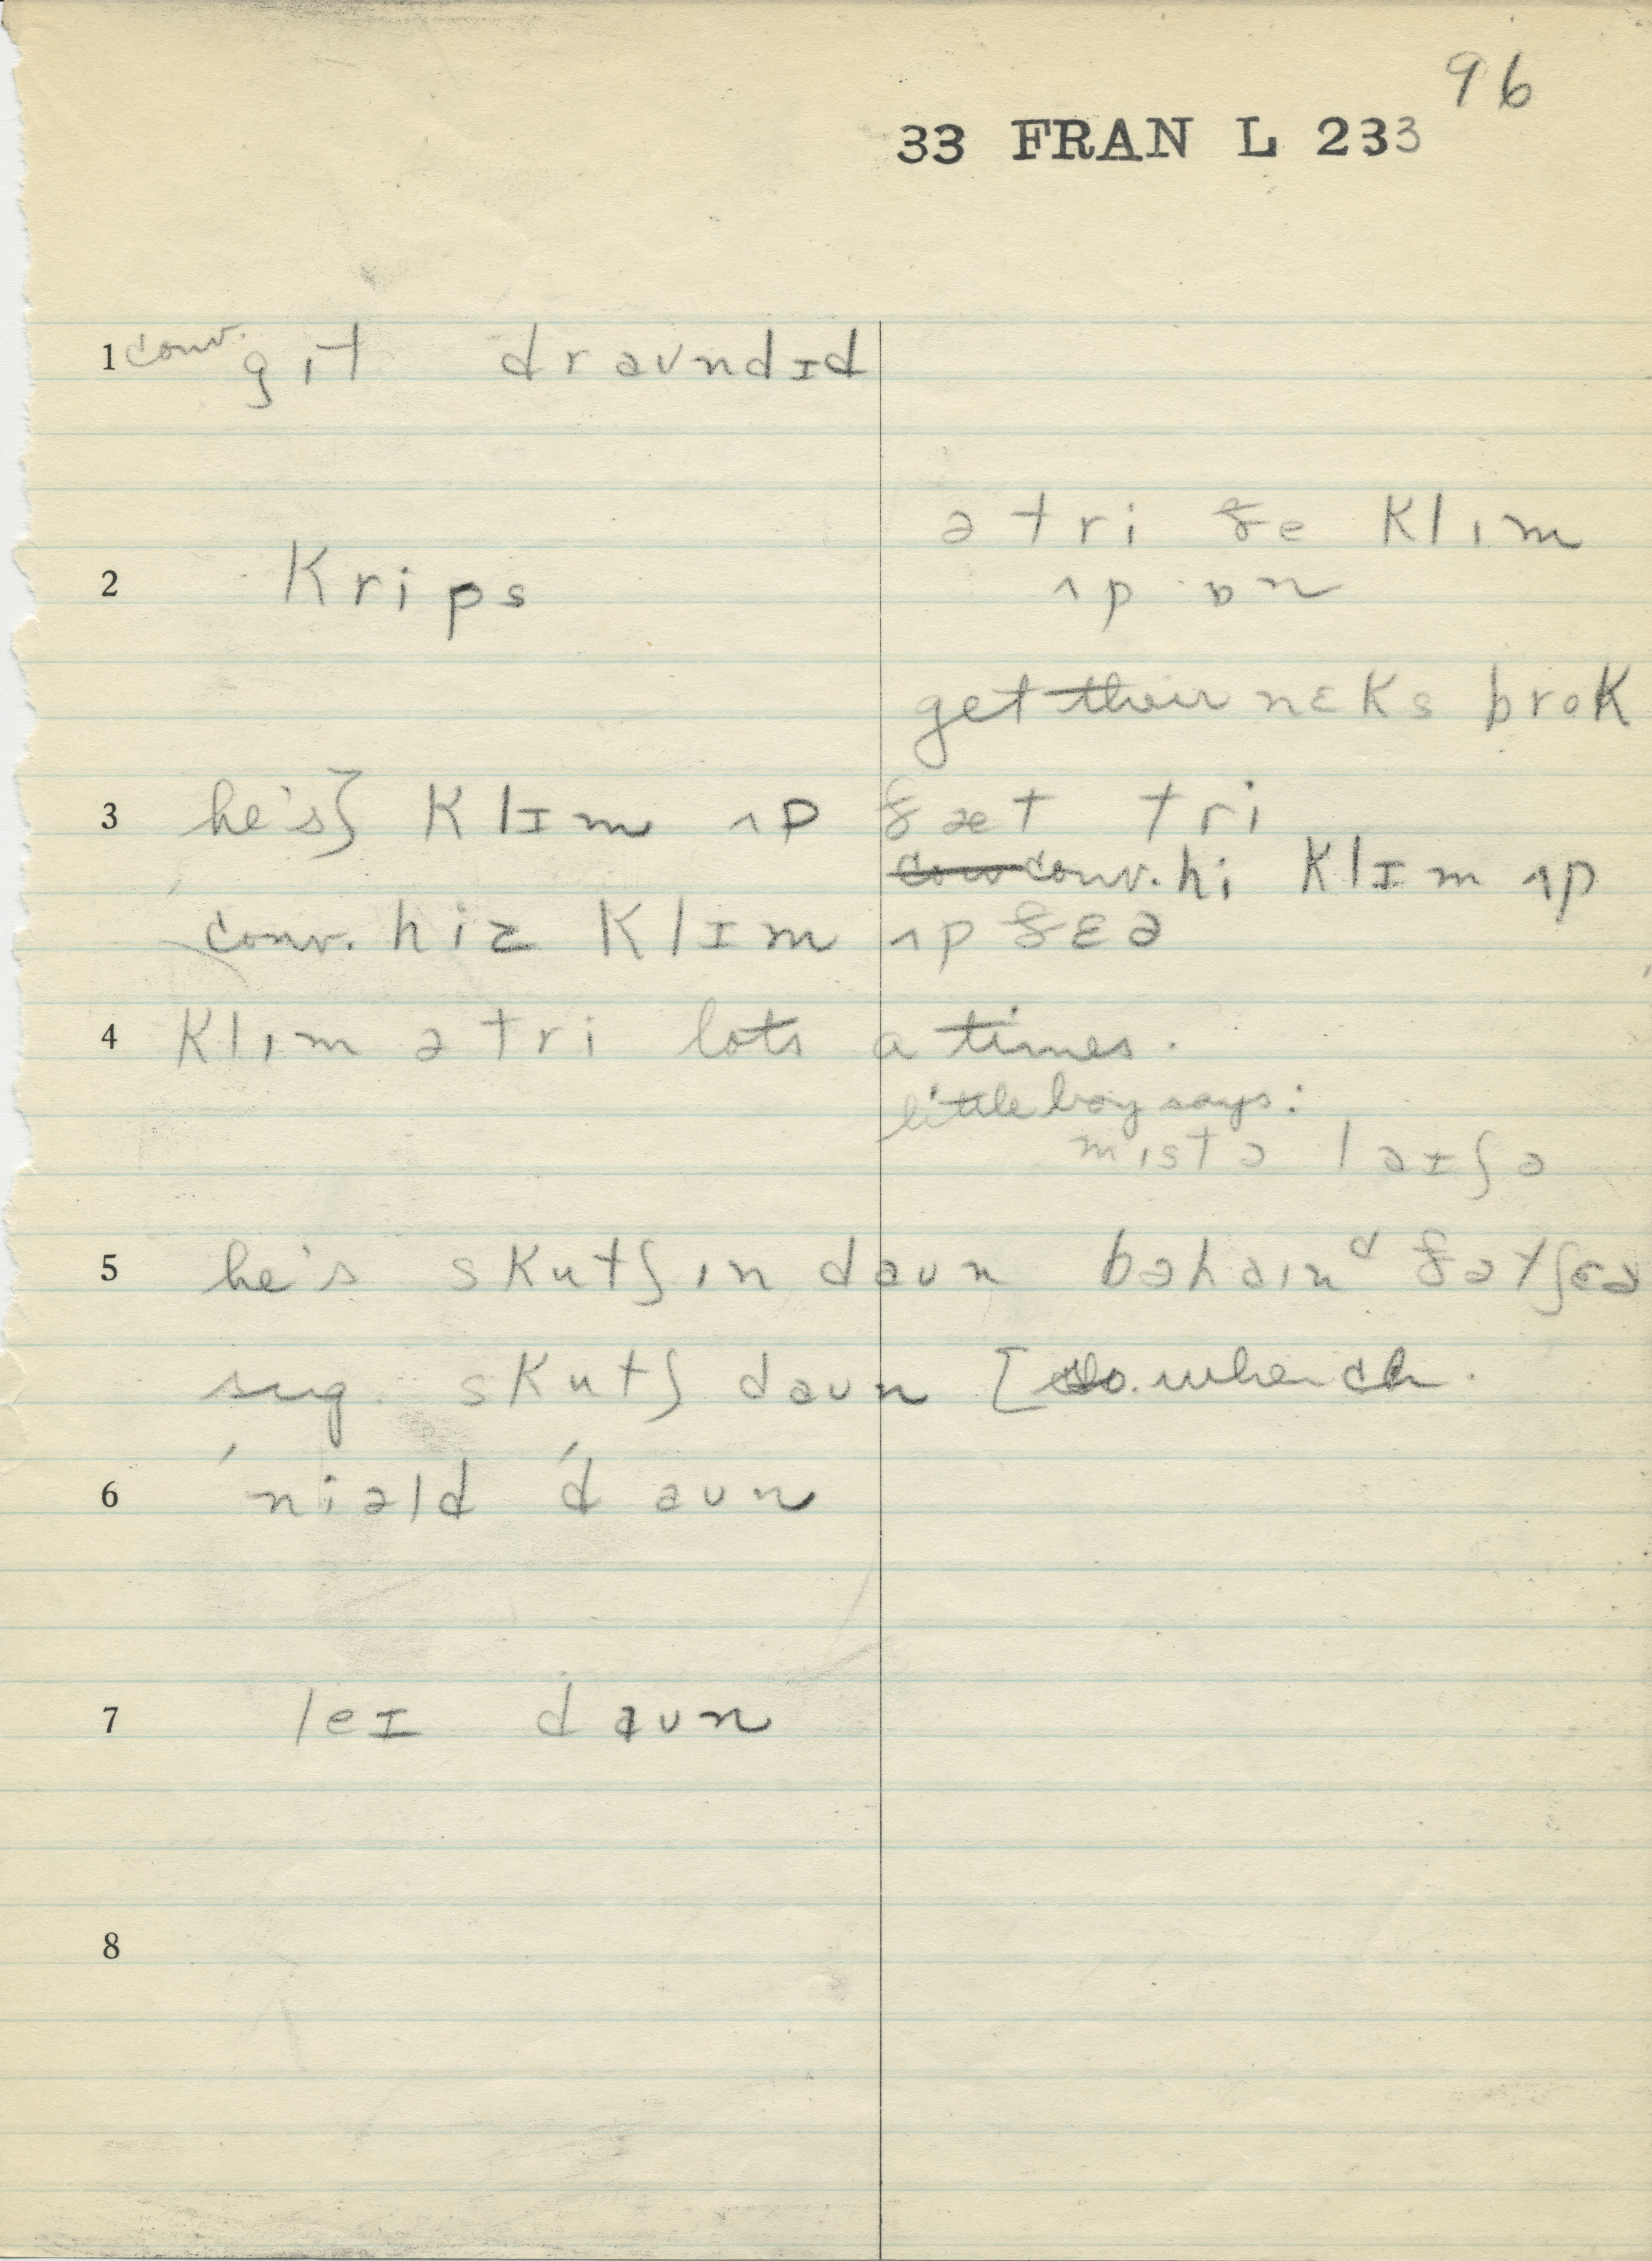 96
33 FRAN L 233
1 conv. gɪt draʊndɪd
ə tri ðe klɪm
2 krips ʌp ɒn
get their nɛks brok
3 he's} klɪm ʌp ðæt tri
conv. hi klɪm ʌp
conv. hiz klɪm ʌp ðɛə
4 klɪm ə tri lots a times.
little boy says:
mɪstə
5 he's skutʃɪn daʊn bəhaɪnᵈ ðə tʃɛə
sug. skutʃ daʊn [do. when ch.
6 ˈniəld ˈdaʊn
7 leɪ daʊn
8